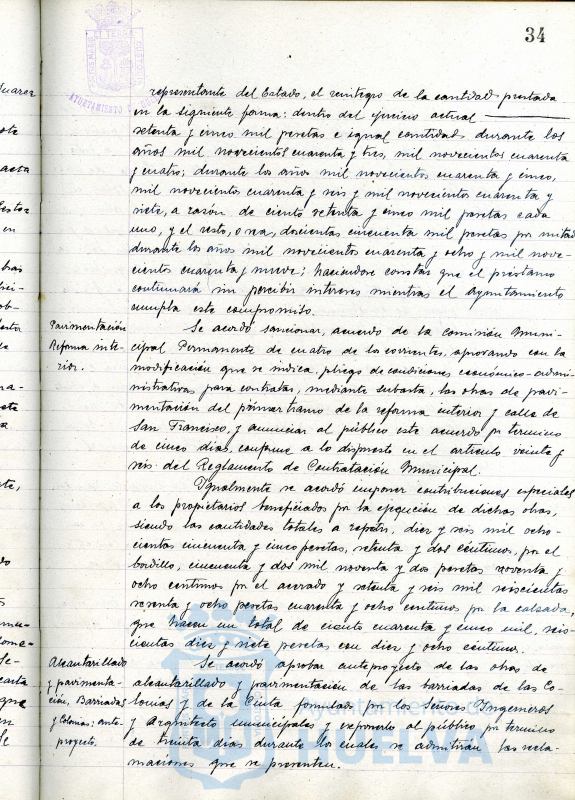 34
AYUNTAMIENTO
representante del Estado, el reintegro de la cantidad prestada
en la siguiente forma: dentro del ejercicio actual
setenta y cinco mil pesetas e igual cantidad durante los
años mil novecientos cuarenta y tres, mil novecientos cuarenta
y cuatro; durante los años mil novecientos cuarenta y cinco,
mil novecientos cuarenta y seis y mil novecientos cuarenta y
siete, a razón de ciento setenta y cinco mil pesetas cada
uno, y el resto, o sea, doscientas cincuenta mil pesetas por mitad
durante los años mil novecientos cuarenta y ocho y mil nove-
cientos cuarenta y nueve; haciéndose constar que el préstamo
continuará sin percibir intereses mientras el Ayuntamiento
cumpla este compromiso.
Pavimentación
Reforma inte-
rior.
Se acordó sancionar, acuerdo de la Comisión Muni-
cipal Permanente de cuatro de los corrientes, aprobando con la
modificación que se indica, pliego de condiciones económico-admi-
nistrativas para contratar, mediante subasta, las obras de pavi-
mentación del primer tramo de la reforma interior y calle de
San Francisco, y anunciar al público este acuerdo por término
de cinco días, conforme a lo dispuesto en el artículo veinte y
seis del Reglamento de Contratación Municipal.
Igualmente se acordó imponer contribuciones especiales
a los propietarios beneficiados por la ejecución de dichas obras,
siendo las cantidades totales a repartir, diez y seis mil ocho-
cientas cincuenta y cinco pesetas, setenta y dos céntimos, por el
bordillo, cincuenta y dos mil noventa y dos pesetas noventa y
ocho céntimos por el acerado y setenta y seis mil seiscientas
sesenta y ocho pesetas cuarenta y ocho céntimos por la calzada,
que hacen un total de ciento cuarenta y cinco mil, seis-
cientas diez y siete pesetas con diez y ocho céntimos.
Alcantarillado
y pavimenta-
ción, Barriadas
y Colonias: ante-
proyecto.
Se acordó aprobar anteproyecto de las obras de
alcantarillado y pavimentación de las barriadas de las Co-
lonias y de la Cinta formulado por los Señores Ingenieros
y Arquitecto municipales y exponerlo al público por término
de treinta días durante los cuales se admitirán las recla-
maciones que se presenten.
HUELVA